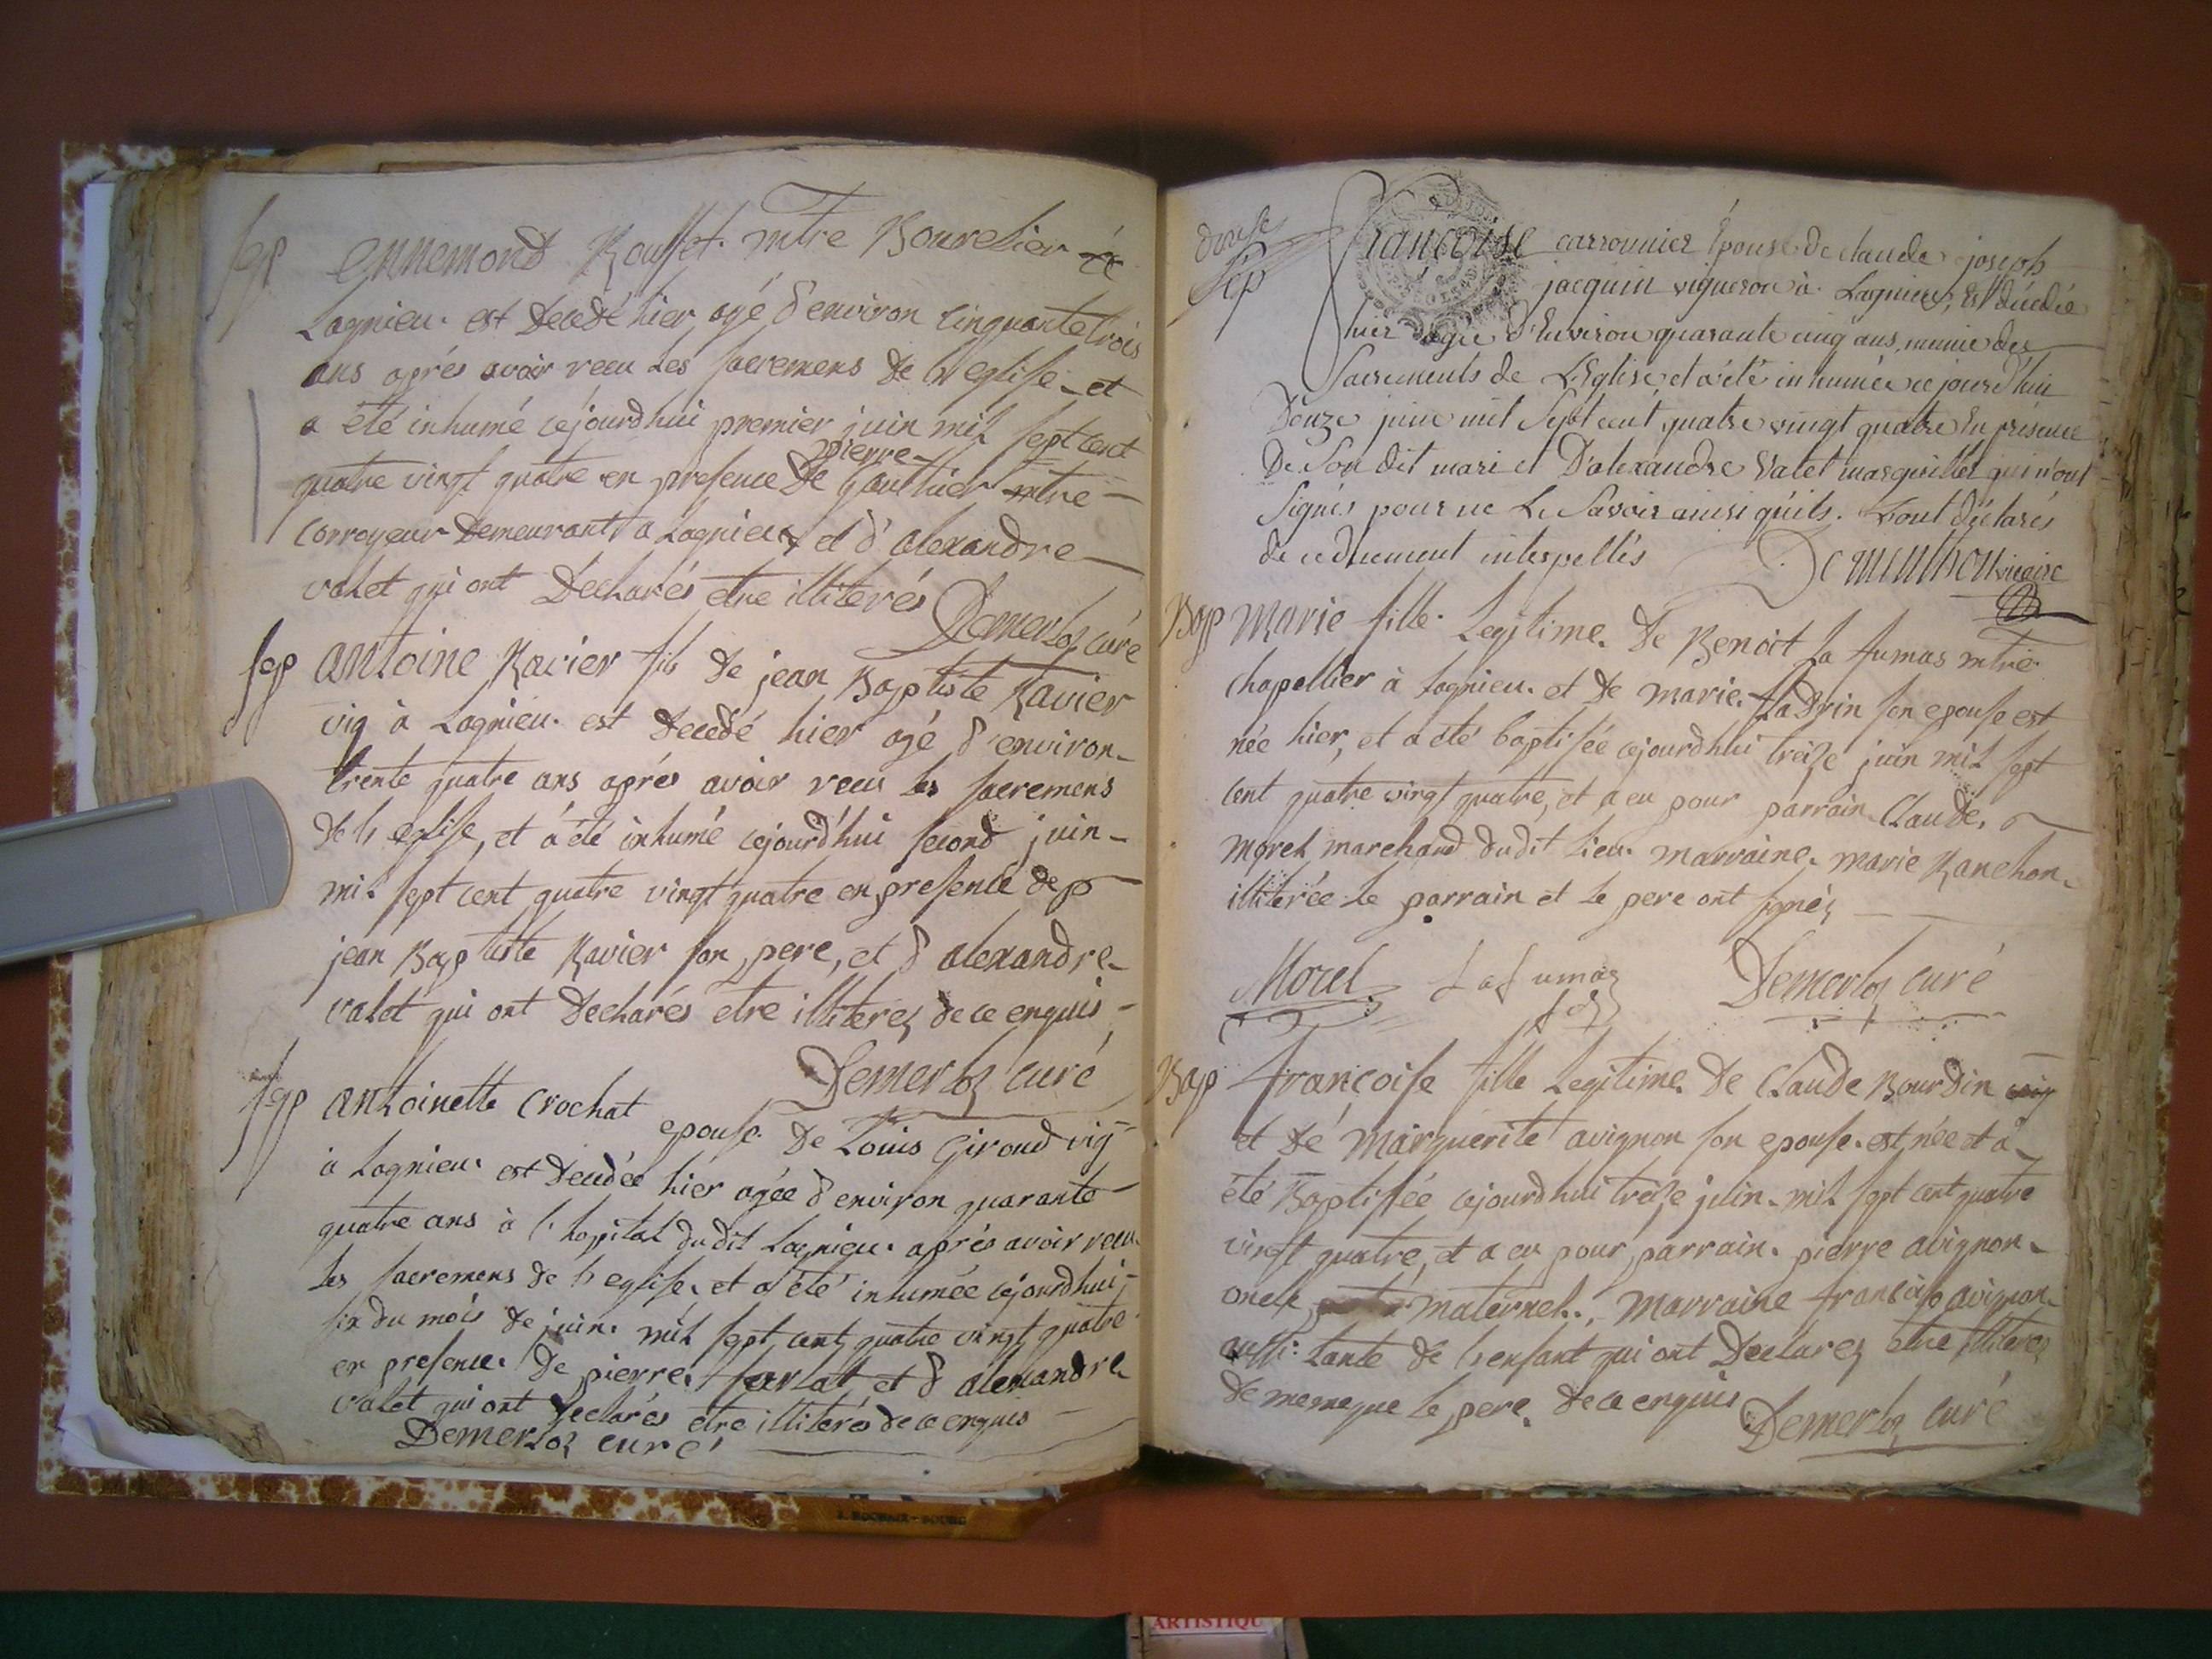 Sep
Ennemond Rousset mtre Bourelier à
Lagnieu est decedé hier agé d'environ cinquante trois
ans aprés avoir recu les sacremens de l'eglise et
a été inhumé cejourdhui premier juin mil sept cent
pierre
quatre vingt quatre en presence de gauthier mtre
corroyeur demeurant a Lagnieu et d'alexandre
valet qui ont declarés etre illiterés
Demerloz curé
Sep
antoine Ravier fils de jean Baptiste Ravier
vig à Lagnieu est decedé hier agé d'environ
trente quatre ans aprés avoir recu les sacremens
de l'eglise, et a été inhumé cejourd'hui second juin
mil sept cent quatre vingt quatre en presence de
jean Baptiste Ravier son pere, et d'alexandre
valet qui ont declarés etre illiterez de ce enquis
Demerloz curé
Sep
antoinette Crochat epouse de Louis Giroud vig
à Lagnieu est decedée hier agée d'environ quarante
quatre ans à l'hopital dudit Lagnieu aprés avoir recu
les sacremens de l'eglise et a été inhumée cejourdhui
six du mois de juin mil sept cent quatre vingt quatre
en presence de pierre sarlat et d'alexandre
valet qui ont declarés etre illiterés de ce enquis
Demerloz curé
Sep
Françoise carronnier Epouse de claude joseph
jacquin vigneron à Lagnieu, Est décédée
hier agée d'Environ quarante cinq ans, munie des
Sacrements de L'Eglise, et a été inhumée ce jourd'hui
Douze juin mil Sept cent quatre vingt quatre En présence
De Son dit mari et D'alexandre Valet marguiller qui n'ont
Signés pour ne Le Savoir ainsi qu'ils L'ont déclarés
de ce duement interpellés
De Menthon vicaire
Bap
Marie fille Legitime de Benoit La fumas mtre
chapellier à Lagnieu et de marie Ladrin son epouse est
née hier, et a été baptisée cejourdhui treize juin mil sept
cent quatre vingt quatre, et a eu pour parrain Claude
morel marchand dudit lieu marraine marie Ranchon
illiterée le parrain et le pere ont signéz
Morel Lafumaz Demerloz curé
Bap
françoise fille Legitime de Claude Bourdin vig
et de Marguerite avignon son epouse est née et a
été Baptisée cejourdhui treize juin mil sept cent quatre
vingt quatre, et a eu pour parrain pierre avignon
oncle maternel, marraine françoise avignon
aussi tante de l'enfant qui ont declarez etre illiterez
de meme que le pere de ce enquis
Demerloz curé
ARTISTIQU